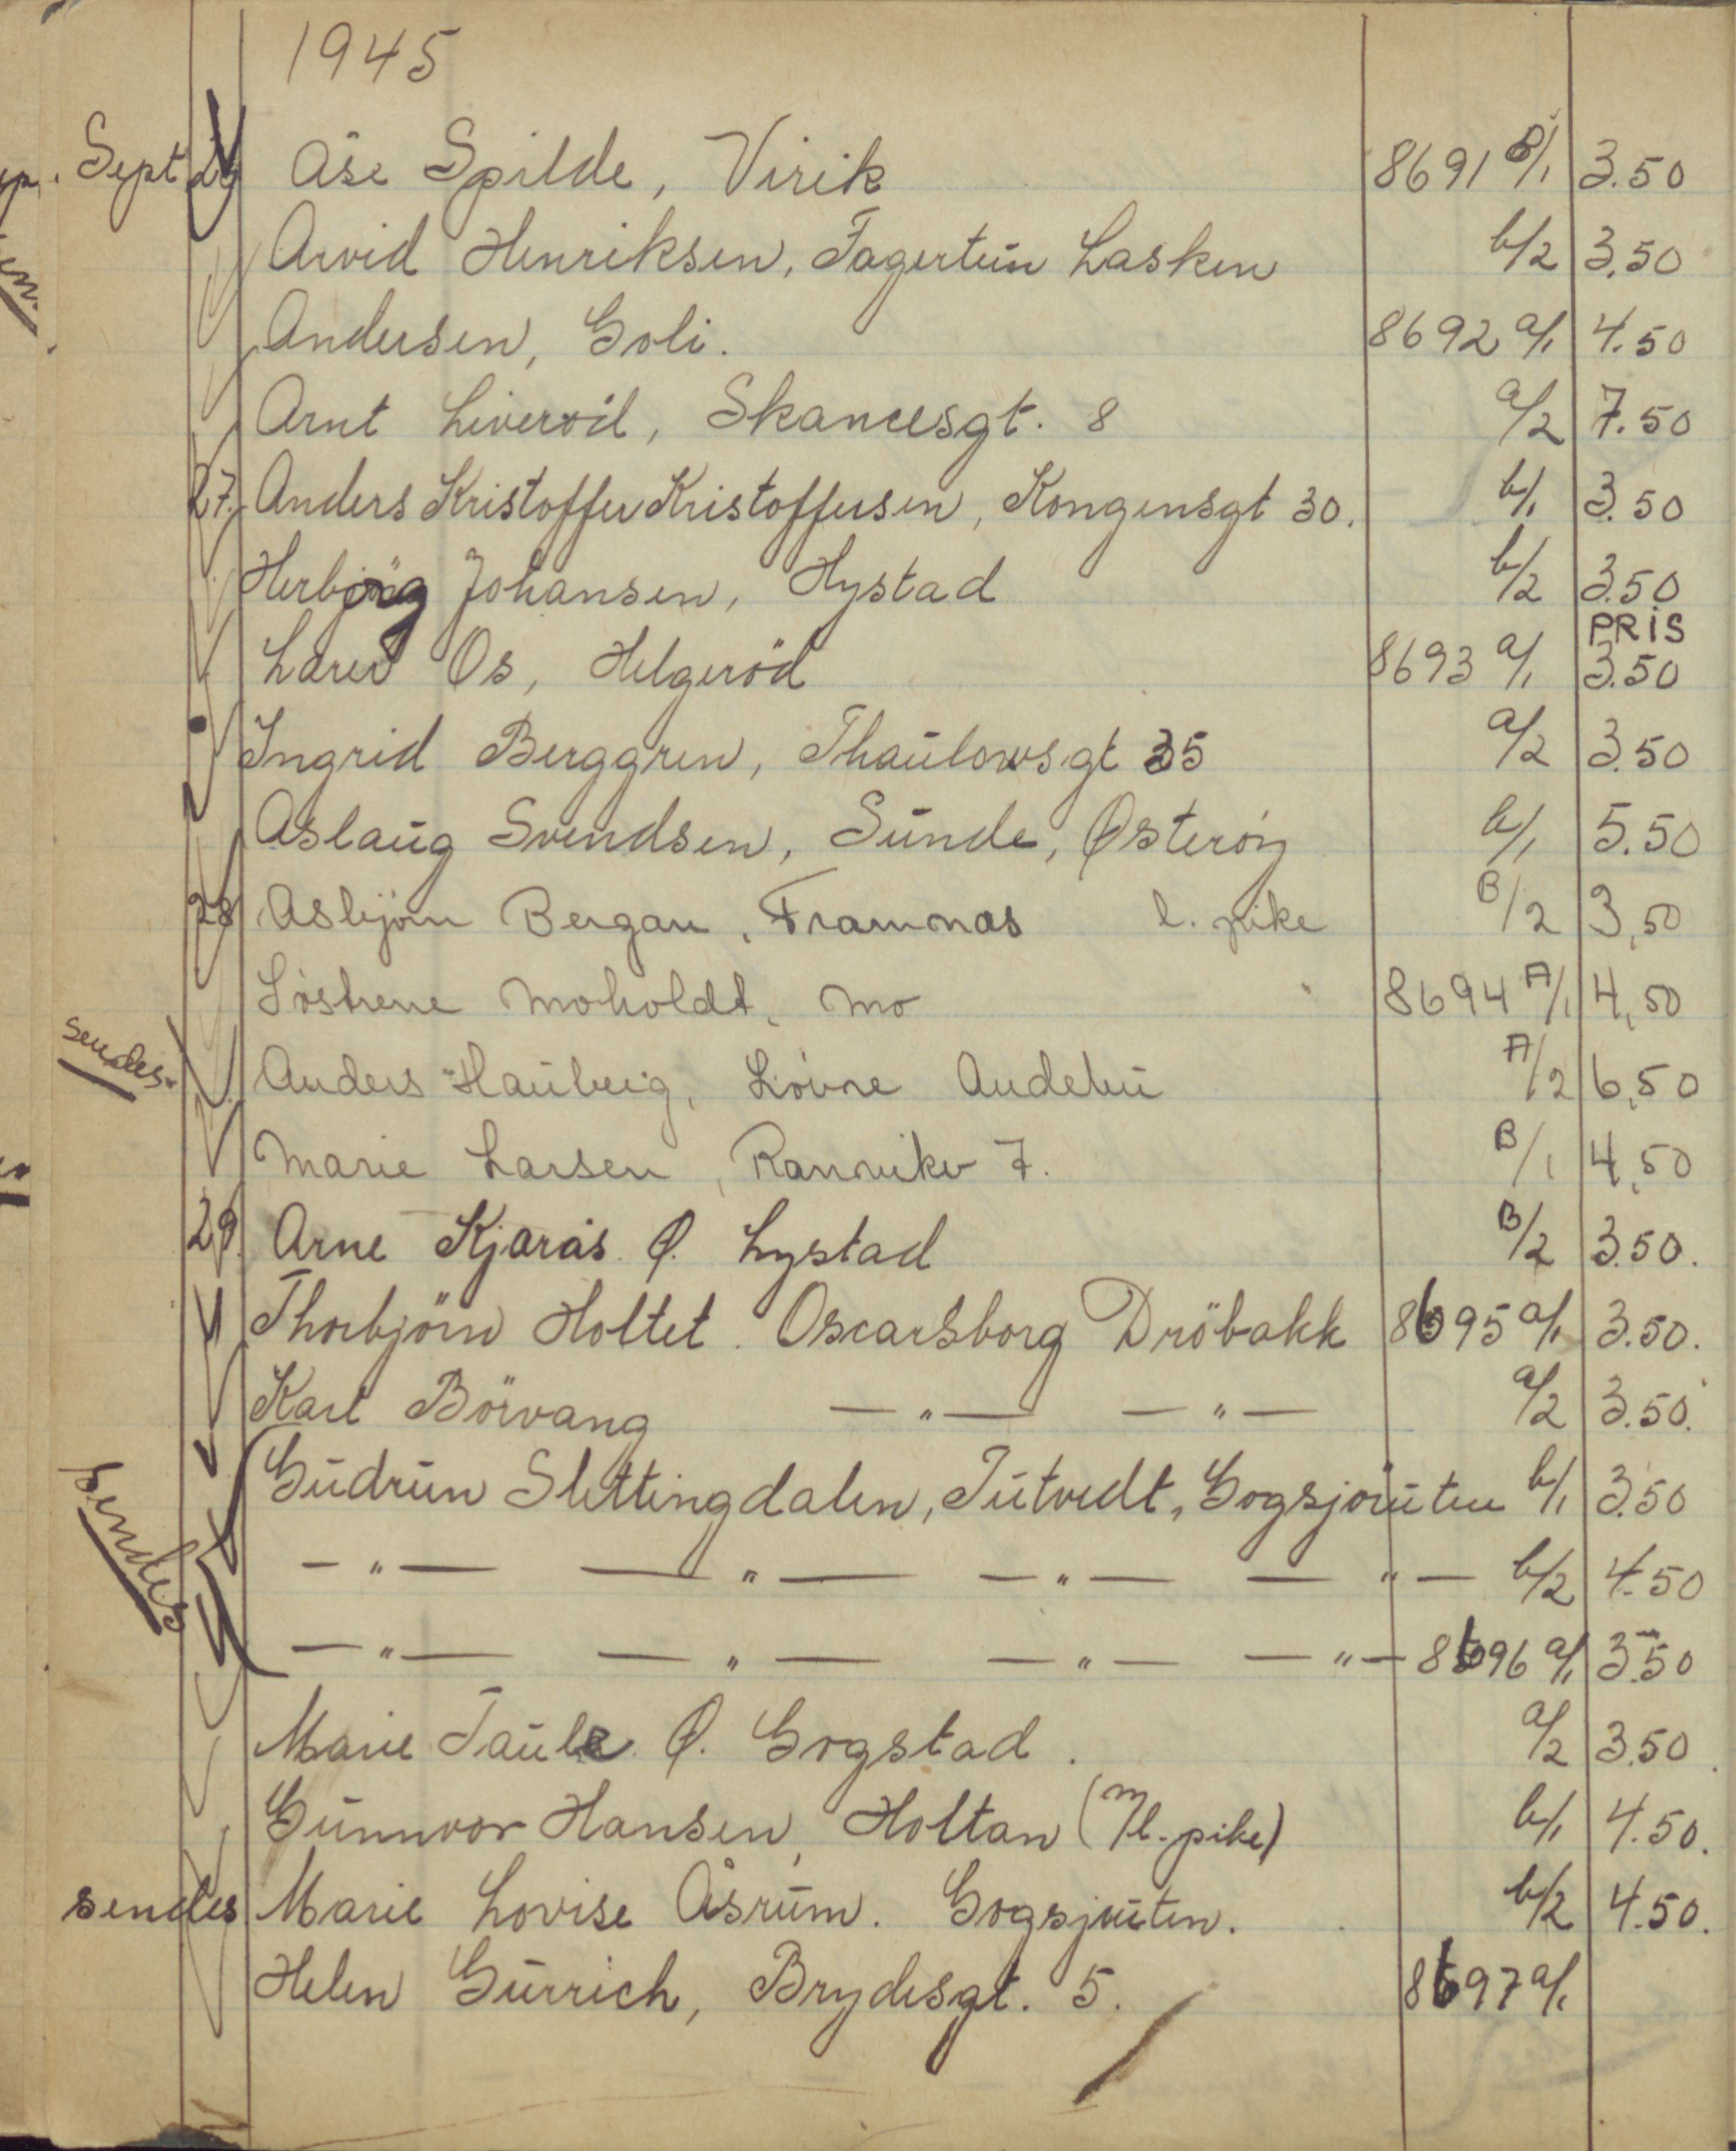 1945
Sept 26 Åse Spilde, Virik 8691 B/1 3.50
Arvid Henriksen, Fagertun Lasken b/2 3.50
Andersen, Goli. 8692 a/1 4.50
Arnt Liveröd, Skancesgt. 8 a/2 7.50
27. Anders Kristoffer Kristoffersen, Kongensgt 30. b/1 3.50
Herbjörg Johansen, Hystad b/2 3.50
PRIS
Os, Helgeröd 8693 a/1 3.50
Ingrid Berggren, Thaulowsgt 35 a/2 3.50
Aslaug Svendsen, Sunde, Østeröy b/1 5.50
28 Asbjörn Bergan, Framnas l. pike B/2 3,50
Söstrene Moholdt, Mo 8694 A/1 4,50
sendes Anders Hauberg, Lövne Andebu A/2 6,50
Marie Larsen, Ranvikv 7. B/1 4,50
29. Arne Kjarås Ø. Lystad B/2 3.50.
Thorbjörn Holtet. Oscarsborg Dröbakk 8695 a/1 3.50.
Karl Börvang — " — — " — a/2 3.50.
sendes Gudrun Slettingdalen, Jutvedt, Gogsjöruten b/1 3.50
— " — — " — — " — — " — b/2 4.50
— " — — " — — " — — " — 8696 a/1 3.50
Marie Ø. Gogstad. a/2 3.50
Gunnvor Hansen, Holtan (m/l. pike) b/1 4.50.
sendes Marie Lovise Åsrum. Gogsjruten. b/2 4.50.
Helen Gurrich, Brydesgt. 5. 8697 a/1